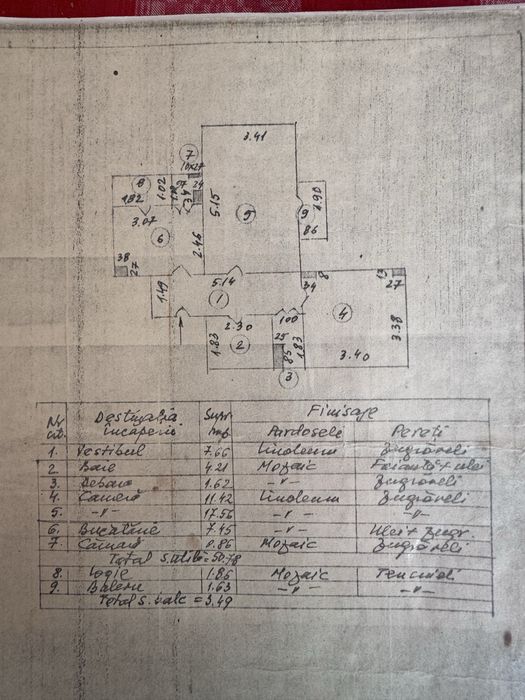 3.41
7
10x27
8
1.02
24
182
3.07
5.15
5
9
1.90
86
6
2.46
38
27
5.14
34
8
13
27
1.49
1
4
2.30
100
1.83
2
25
85
1.83
3.38
3.40
3
Nr Destinația Supr Finisaje
crt. încăperii mp Pardoseli Pereți
1. Vestibul 7.66 Linoleum Zugrăveli
2 Baie 4.21 Mozaic Faianță + ulei
3. Debara 1.62 -"- Zugrăveli
4. Cameră 11.42 Linoleum Zugrăveli
5. -"- 17.56 -"- -"-
6. Bucătărie 7.45 -"- Ulei + Zugr.
7. Cămară 0.86 Mozaic Zugrăveli
Total s. utilă = 50.78
8. Logie 1.86 Mozaic Tencuieli
9. Balcon 1.63 -"- -"-
Total s. balc = 3.49